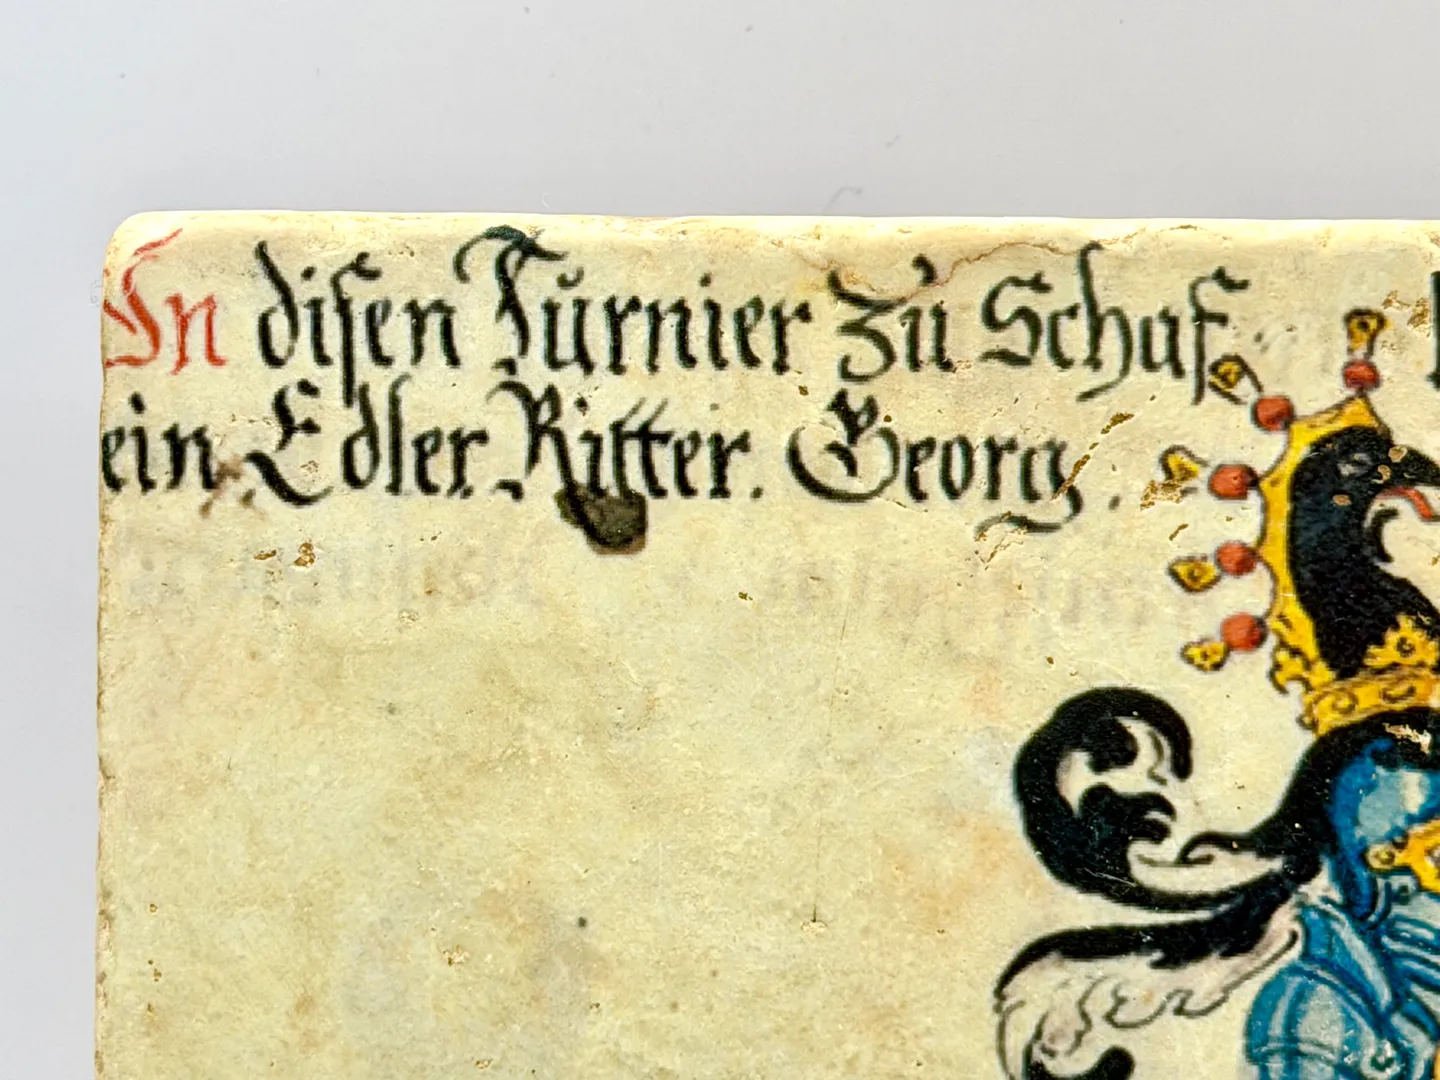 In disen Turnier zů Schaf
ein Edler Ritter. Georg.